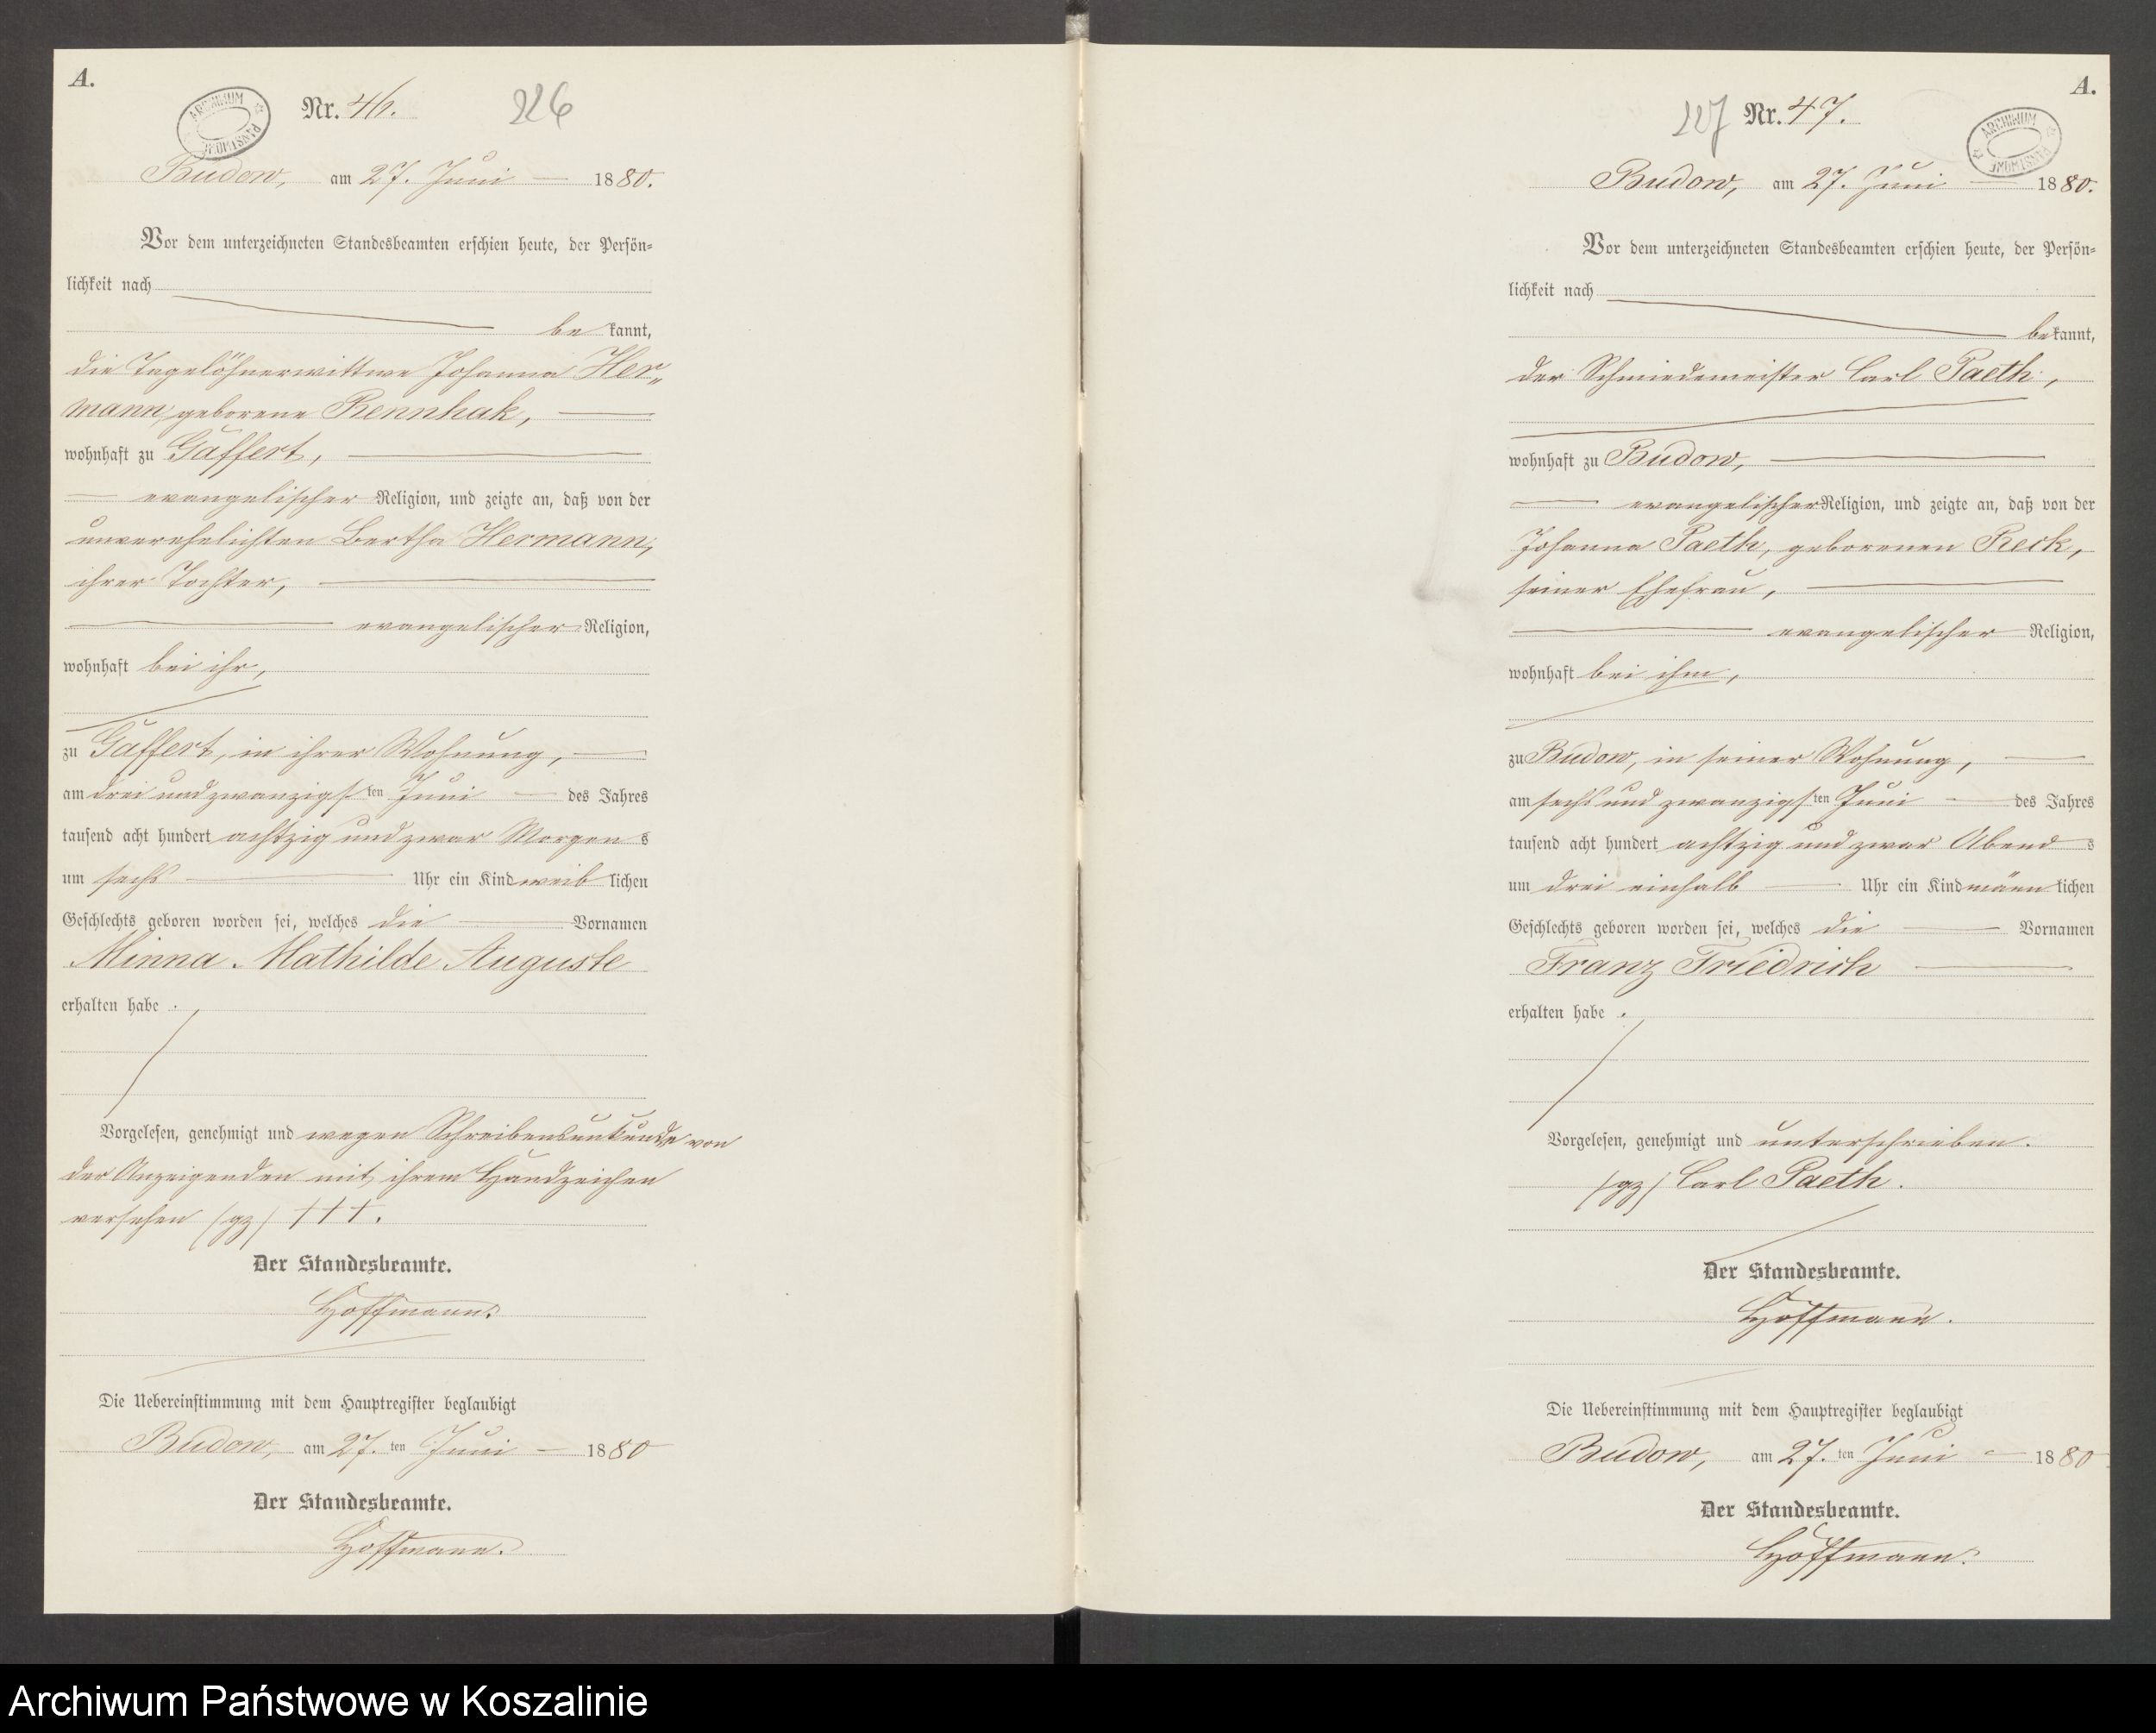 A.
ARCHIWUM PAŃSTWOWE
Nr. 46.
226
Budow, am 27. Juni 1880.
Vor dem unterzeichneten Standesbeamten erschien heute, der Persön-
lichkeit nach
bekannt,
die Tagelöhnerwittwe Johanna Her-
mann, geborene Rennhak,
wohnhaft zu Gaffert,
evangelischer Religion, und zeigte an, daß von der
unverehelichten Bertha Hermann,
ihrer Tochter,
evangelischer Religion,
wohnhaft bei ihr,
zu Gaffert, in ihrer Wohnung,
am drei und zwanzigsten Juni des Jahres
tausend acht hundert achtzig und zwar Morgens
um sechs Uhr ein Kind weiblichen
Geschlechts geboren worden sei, welches die Vornamen
Minna Mathilde Auguste
erhalten habe.
Vorgelesen, genehmigt und wegen Schreibensunkunde von
der Anzeigenden mit ihrem Handzeichen
versehen (gz) +++.
Der Standesbeamte.
Hoffmann.
Die Uebereinstimmung mit dem Hauptregister beglaubigt
Budow, am 27.ten Juni 1880
Der Standesbeamte.
Hoffmann.
A.
227
Nr. 47.
ARCHIWUM PAŃSTWOWE
Budow, am 27. Juni 1880.
Vor dem unterzeichneten Standesbeamten erschien heute, der Persön-
lichkeit nach
bekannt,
der Schmiedemeister Carl Paeth,
wohnhaft zu Budow,
evangelischer Religion, und zeigte an, daß von der
Johanna Paeth, geborenen Reck,
seiner Ehefrau,
evangelischer Religion,
wohnhaft bei ihm,
zu Budow, in seiner Wohnung,
am sechs und zwanzigsten Juni des Jahres
tausend acht hundert achtzig und zwar Abends
um drei einhalb Uhr ein Kind männlichen
Geschlechts geboren worden sei, welches die Vornamen
Franz Friedrich
erhalten habe.
Vorgelesen, genehmigt und unterschrieben.
(gz) Carl Paeth.
Der Standesbeamte.
Hoffmann.
Die Uebereinstimmung mit dem Hauptregister beglaubigt
Budow, am 27.ten Juni 1880
Der Standesbeamte.
Hoffmann.
Archiwum Państwowe w Koszalinie